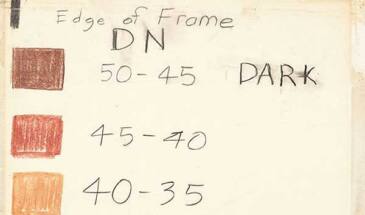 Edge of Frame
DN
50-45 DARK
45-40
40-35